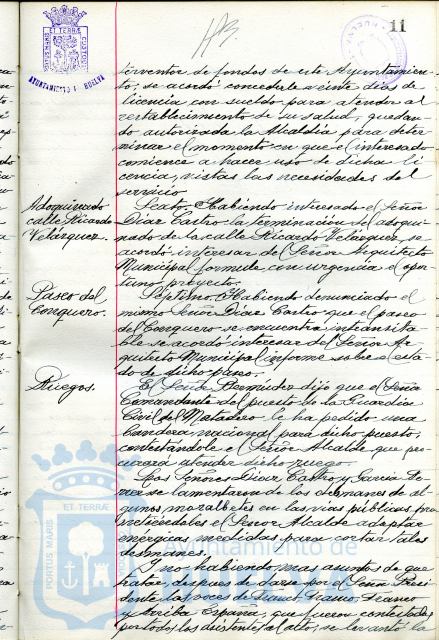 11
AYUNTAMIENTO DE HUELVA
terventor de fondos de este Ayuntamien-
to, se acordó concederle veinte días de
licencia con sueldo para atender al
restablecimiento de su salud, quedan-
do autorizada la Alcaldía para deter
minar el momento en que el interesado
comience a hacer uso de dicha li
cencia, vistas las necesidades del
servicio
Adoquinado
calle Ricardo
Velázquez.
Sexto. Habiendo interesado el Señor
Díaz Castro la terminación del adoqui-
nado de la calle Ricardo Velázquez, se
acordó interesar del Señor Arquitecto
Municipal formule con urgencia el opor-
tuno proyecto.
Paseo del
Conquero.
Séptimo. Habiendo denunciado el
mismo Señor Díaz Castro que el paseo
del Conquero se encuentra intransita-
ble se acordó interesar del Señor Ar
quitecto Municipal informe sobre el esta-
do de dicho paseo.
Ruegos.
El Señor Bermúdez dijo que el Señor
Comandante del puesto de la Guardia
Civil del Matadero, le ha pedido una
bandera nacional para dicho puesto,
contestándole el Señor Alcalde que pro
curará atender dicho ruego
Los Señores Díaz Castro y García
se lamentaron de los desmanes de al-
gunos mozalbetes en las vías públicas, pro
metiéndoles el Señor Alcalde adoptar
enérgicas medidas para cortar tales
desmanes.
Y no habiendo mas asuntos de que
tratar, despues de darse por el Señor Presi
dente las voces de Franco, Franco, Franco
y Arriba España que fueron contestadas
por todos los asistentes al acto, se levantó la
PORTUS MARIS ET TERRAE
Ayuntamiento de